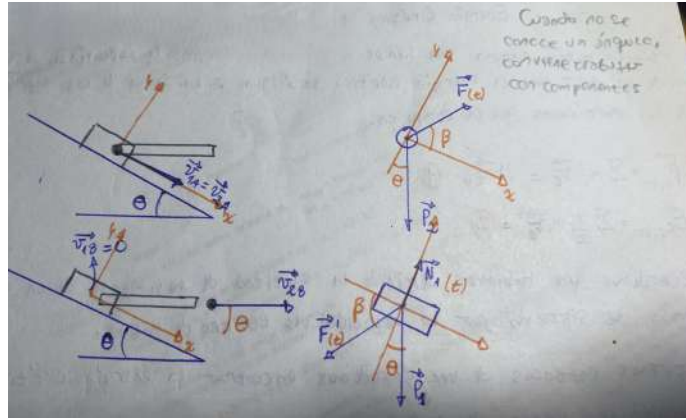 Cuando no se
conoce un ángulo,
conviene trabajar
con componentes
y
F⃗(t)
β
θ
x
P⃗₂
y
v⃗₁A = v⃗₂A
θ
x
v⃗₁B = 0
y
v⃗₂B
θ
x
θ
y
N⃗₁(t)
β
F⃗'(t)
θ
x
P⃗₁